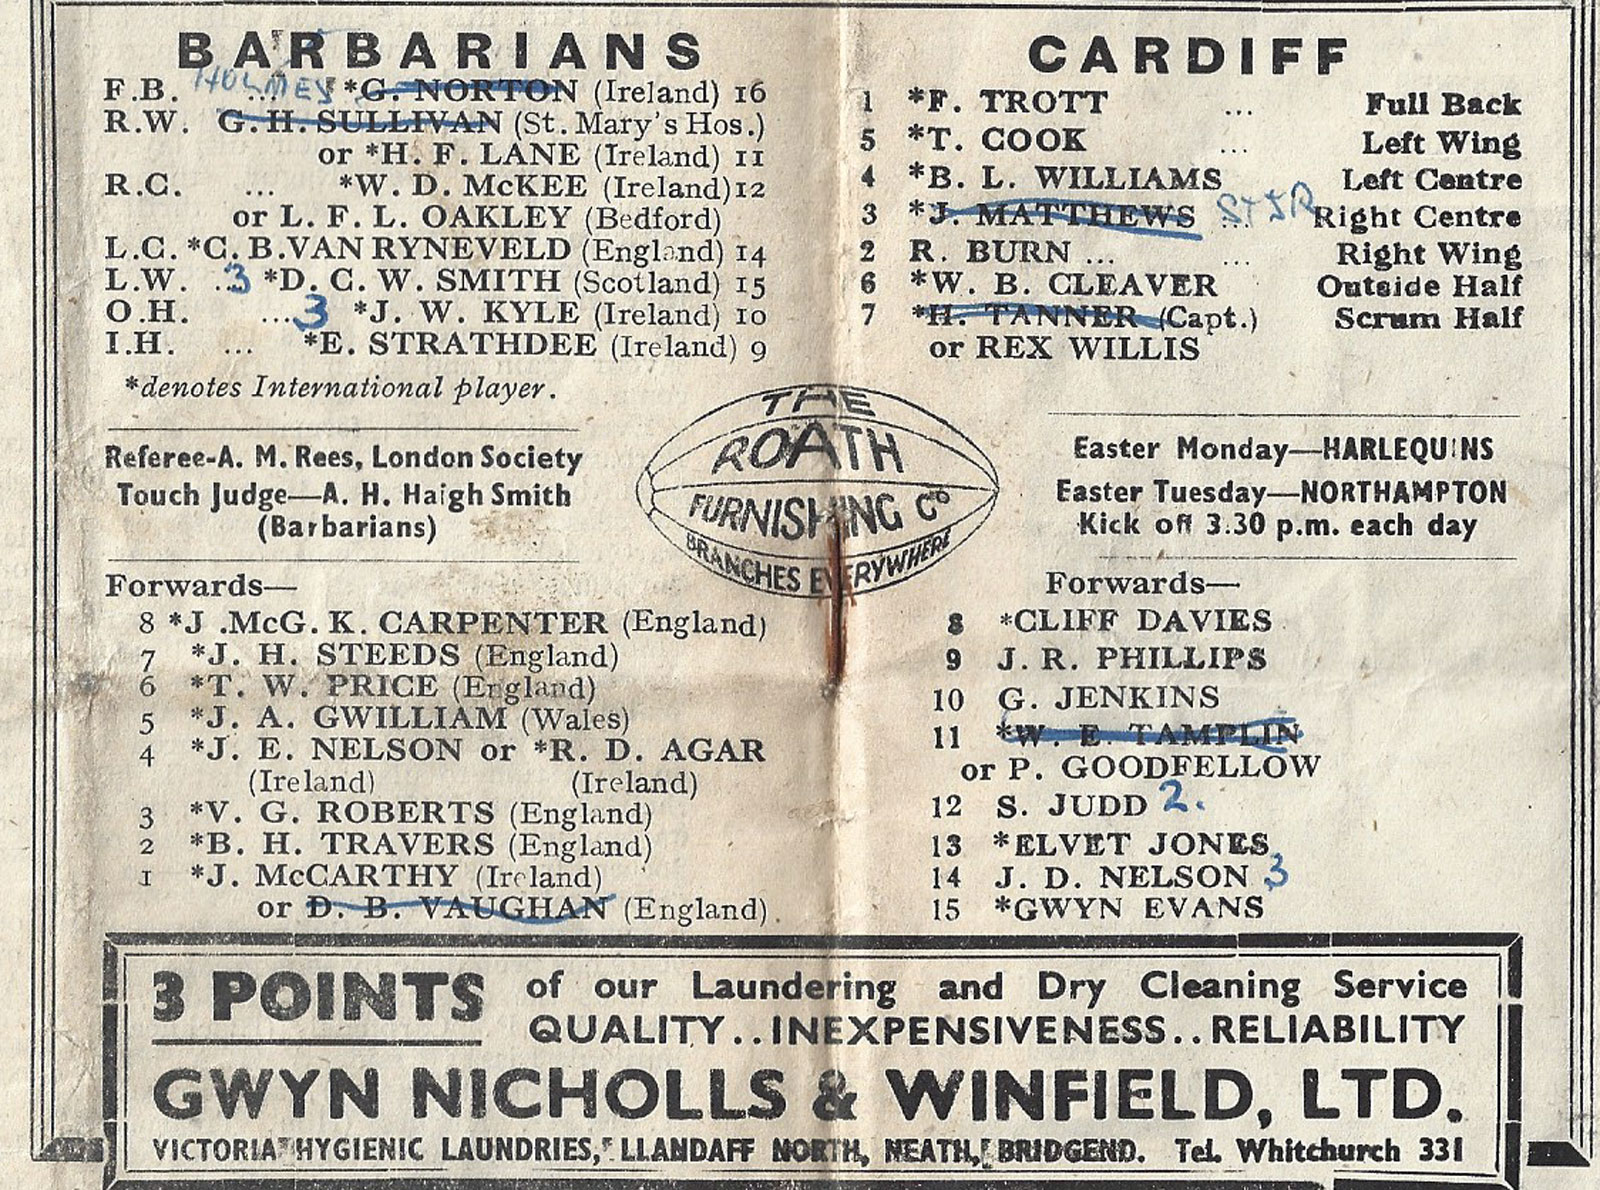 BARBARIANS
F.B. HOLMES ... *G. NORTON (Ireland) 16
R.W. G. H. SULLIVAN (St. Mary's Hos.)
or *H. F. LANE (Ireland) 11
R.C. ... *W. D. McKEE (Ireland) 12
or L. F. L. OAKLEY (Bedford)
L.C. *C. B. VAN RYNEVELD (England) 14
L.W. .. 3 *D. C. W. SMITH (Scotland) 15
O.H. ... 3 *J. W. KYLE (Ireland) 10
I.H. ... *E. STRATHDEE (Ireland) 9
*denotes International player.
Referee-A. M. Rees, London Society
Touch Judge—A. H. Haigh Smith
(Barbarians)
Forwards—
8 *J .McG. K. CARPENTER (England)
7 *J. H. STEEDS (England)
6 *T. W. PRICE (England)
5 *J. A. GWILLIAM (Wales)
4 *J. E. NELSON or *R. D. AGAR
(Ireland) (Ireland)
3 *V. G. ROBERTS (England)
2 *B. H. TRAVERS (England)
1 *J. McCARTHY (Ireland)
or D. B. VAUGHAN (England)
THE
ROATH
FURNISHING Co
BRANCHES EVERYWHERE
CARDIFF
1 *F. TROTT ... Full Back
5 *T. COOK ... Left Wing
4 *B. L. WILLIAMS Left Centre
3 *J. MATTHEWS ... Right Centre
2 R. BURN ... ... Right Wing
6 *W. B. CLEAVER Outside Half
7 *H. TANNER (Capt.) Scrum Half
or REX WILLIS
Easter Monday—HARLEQUINS
Easter Tuesday—NORTHAMPTON
Kick off 3.30 p.m. each day
Forwards—
8 *CLIFF DAVIES
9 J. R. PHILLIPS
10 G. JENKINS
11 *W. E. TAMPLIN
or P. GOODFELLOW
12 S. JUDD 2.
13 *ELVET JONES
14 J. D. NELSON 3
15 *GWYN EVANS
3 POINTS of our Laundering and Dry Cleaning Service
QUALITY..INEXPENSIVENESS..RELIABILITY
GWYN NICHOLLS & WINFIELD, LTD.
"VICTORIA" HYGIENIC LAUNDRIES, LLANDAFF NORTH, NEATH, BRIDGEND. Tel. Whitchurch 331